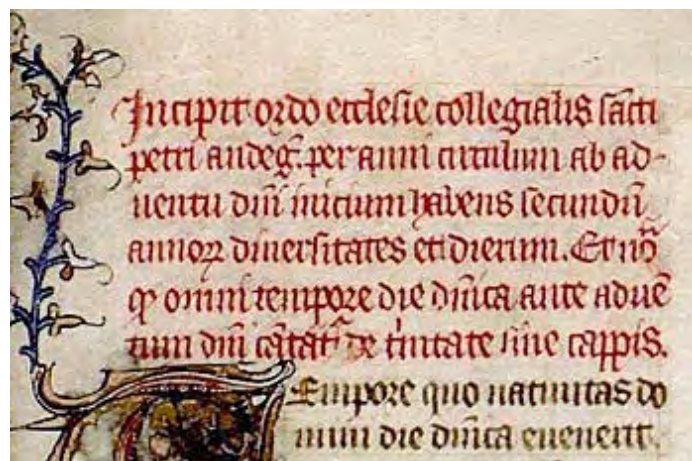 Incipit ordo ecclesie collegialis sancti
petri andeg̃. per anni circulum ab ad-
uentu dñi inicium habens secundũ
annoꝝ diuersitates et dierum. Et no͂
ꝙ omni tempore die dñica ante aduẽ
tum dñi cãtat̃ de t̾nitate siue cappis.
Empore quo natiuitas do
mini die dñica euenerit.